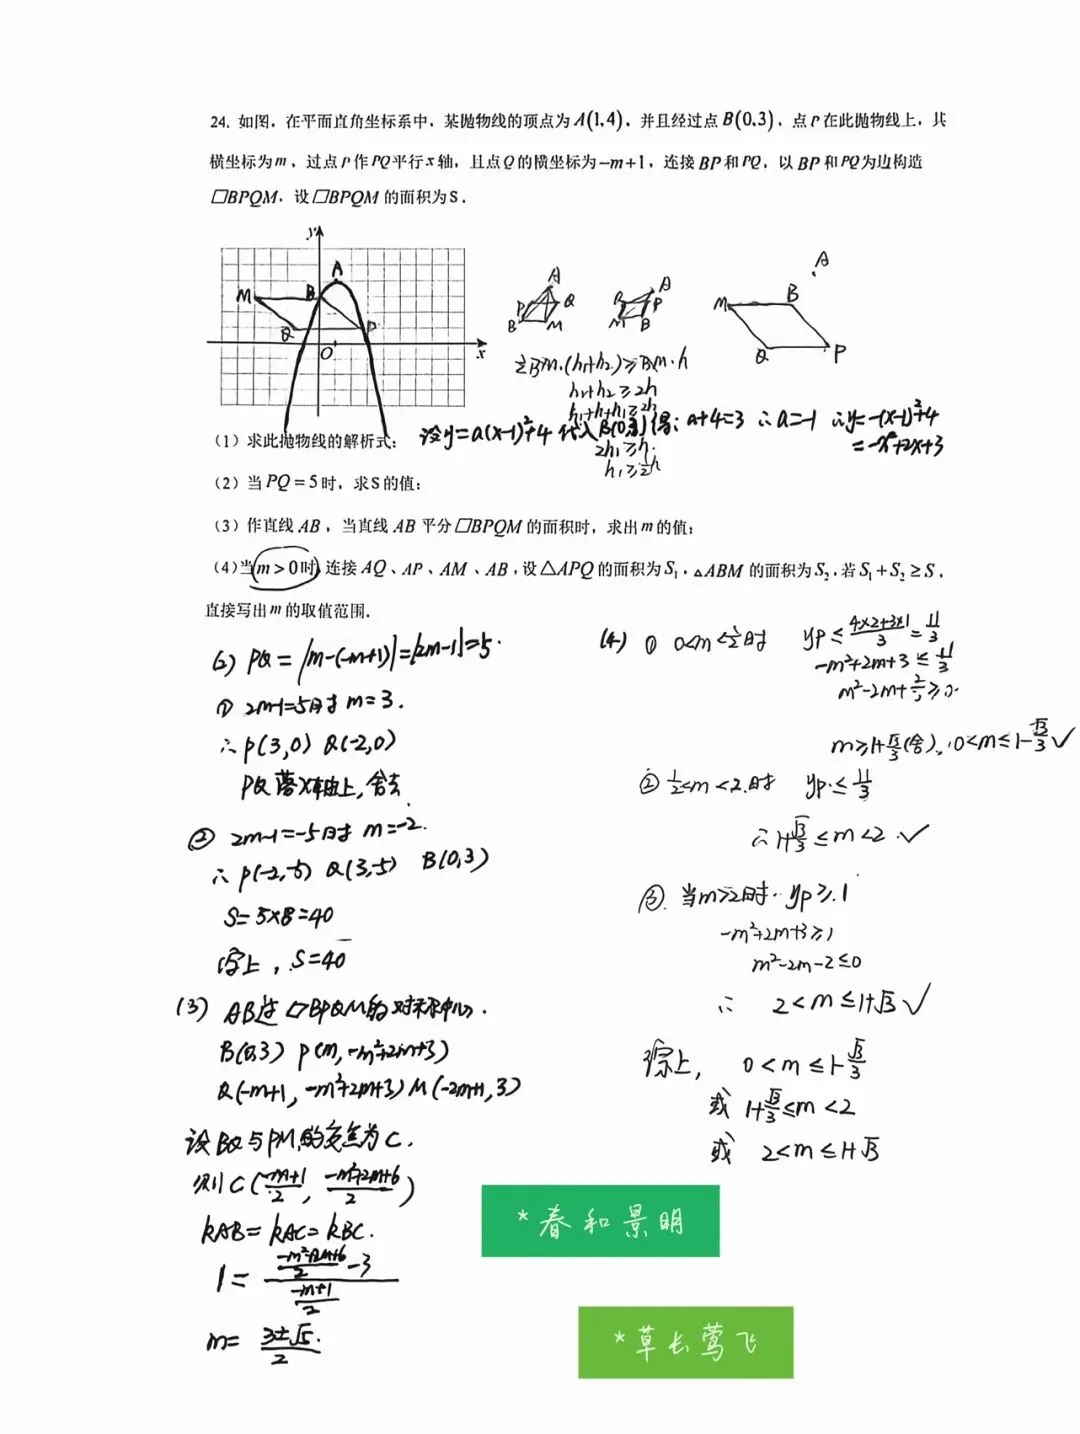 24. 如图，在平面直角坐标系中，某抛物线的顶点为A(1,4)，并且经过点B(0,3)，点P在此抛物线上，其
横坐标为m，过点P作PQ平行x轴，且点Q的横坐标为-m+1，连接BP和PQ，以BP和PQ为边构造
□BPQM，设□BPQM的面积为S．
y
A
M
B
Q
P
O
x
A
P
Q
B
M
A
P
M
B
A
M
B
Q
P
½BM·(h₁+h₂)≥BM·h
h₁+h₂≥2h
h₁+h+h₁≥2h
2h₁≥h
h₁≥½h
（1）求此抛物线的解析式；
设y=a(x-1)²+4 代入B(0,3)得：a+4=3 ∴a=-1 ∴y=-(x-1)²+4
=-x²+2x+3
（2）当PQ=5时，求S的值；
（3）作直线AB，当直线AB平分□BPQM的面积时，求出m的值；
（4）当m>0时，连接AQ、AP、AM、AB，设△APQ的面积为S₁，△ABM的面积为S₂，若S₁+S₂≥S，
直接写出m的取值范围．
(2) PQ=|m-(-m+1)|=|2m-1|=5.
① 2m-1=5时 m=3.
∴P(3,0) Q(-2,0)
PQ落x轴上，舍去
② 2m-1=-5时 m=-2.
∴P(-2,-5) Q(3,-5) B(0,3)
S=5×8=40
综上，S=40
(3) AB过▱BPQM的对称中心.
B(0,3) P(m,-m²+2m+3)
Q(-m+1,-m²+2m+3) M(-2m+1,3)
设BQ与PM的交点为C.
则C(\frac{-m+1}{2},\frac{-m²+2m+6}{2})
kAB=kAC=kBC.
1=\frac{\frac{-m²+2m+6}{2}-3}{\frac{-m+1}{2}}
m=\frac{3±√5}{2}.
(4) ① 0<m<½时 yP≤\frac{4×2+3×1}{3}=\frac{11}{3}
-m²+2m+3≤\frac{11}{3}
m²-2m+\frac{2}{3}≥0
m≥1+\frac{√3}{3}(舍), 0<m≤1-\frac{√3}{3}✓
② ½<m<2时 yP≤\frac{11}{3}
∴1+\frac{√3}{3}≤m<2 ✓
③ 当m>2时 yP≥1
-m²+2m+3≥1
m²-2m-2≤0
∴ 2<m≤1+√3 ✓
综上， 0<m≤1-\frac{√3}{3}
或 1+\frac{√3}{3}≤m<2
或 2<m≤1+√3
*春和景明
*草长莺飞